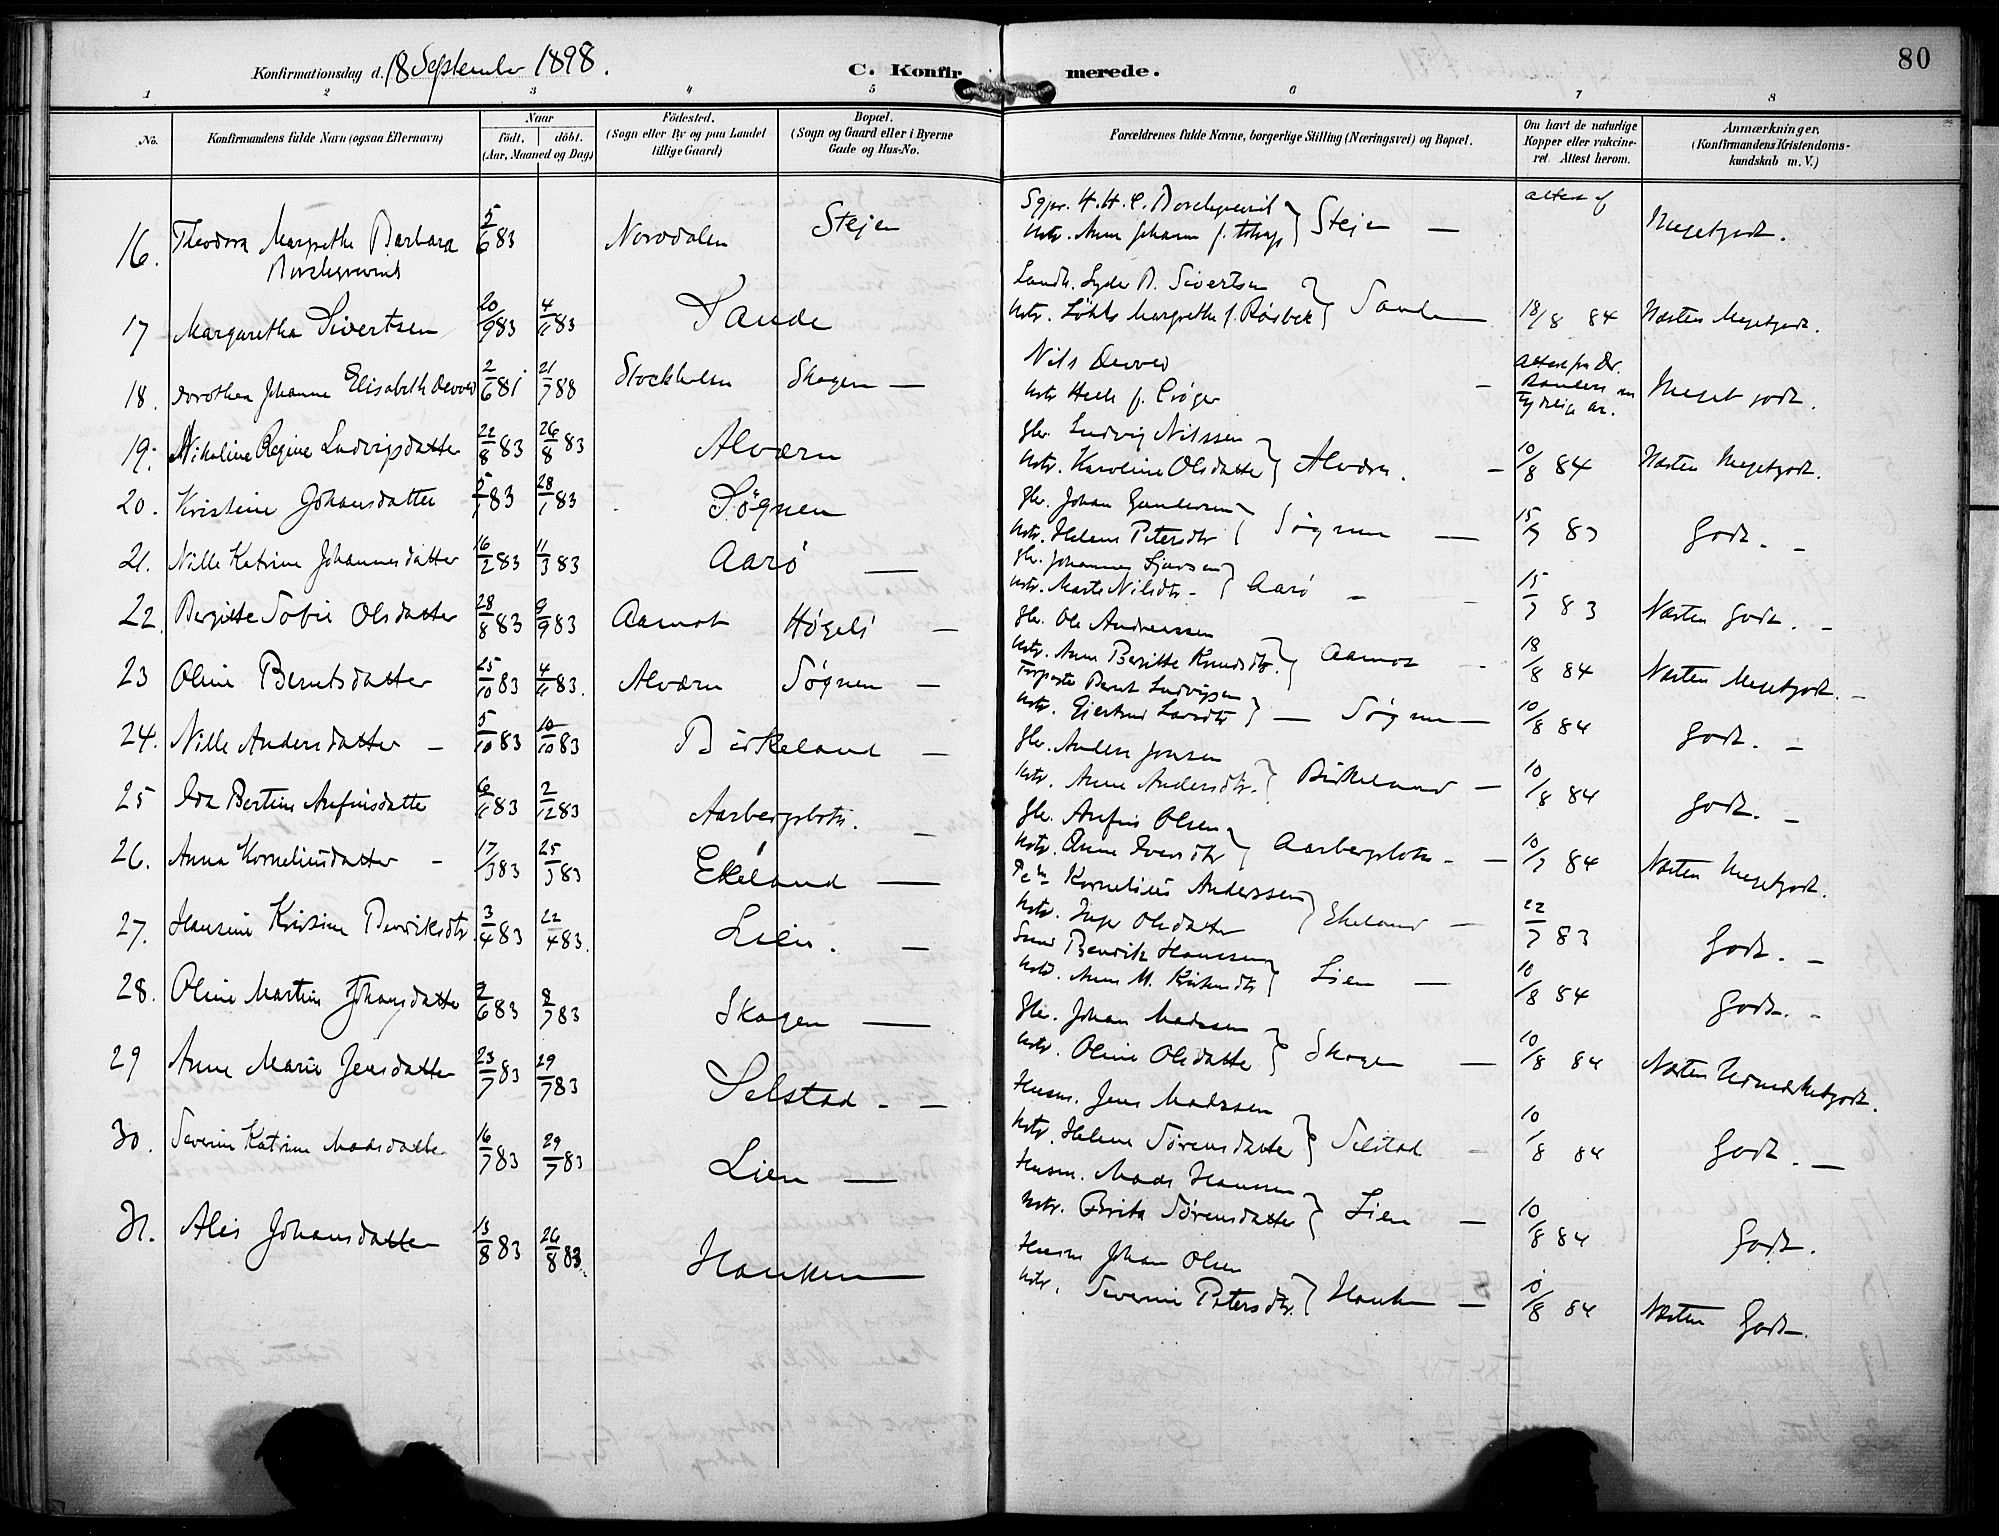 Konfirmationsdag d. 18 September 1898.
C. Konfirmerede.
80
1 2 3 4 5 6 7 8
No.
Konfirmandens fulde Navn (ogsaa Efternavn)
Naar
født, døbt.
(Aar, Maaned og Dag)
Födested.
(Sogn eller By og paa Landet
tillige Gaard)
Bopæl.
(Sogn og Gaard eller i Byerne
Gade og Hus-No.
Forældrenes fulde Navne, borgerlige Stilling (Næringsvei) og Bopæl.
Om havt de naturlige
Kopper eller vakcine-
ret. Attest herom.
Anmærkninger,
(Konfirmandens Kristendoms-
kundskab m. V.)
16. Theodora Margrethe Barbara
Borchgrevink
5/6 83 Norddalen Stejen
H. H. C. Borchgrevink
Anne Johanne f.
Stejen —
attest af
Megetgodt.
17 Margaretha Sivertsen 20/9 83 4/11 83 Sande
Landh. Lyder B. Sivertsen
Margrethe f.
Sande
18/8 84 Næsten Megetgodt.
18. Dorothea Johanne Elisabeth 2/6 81 21/7 88 Stockholm Skogen —
Nils
f. Krøger
Meget godt.
19. Nikoline Regine Ludvigsdatter 22/8 83 26/8 83 Alværn
Ludvig Nilssen
Karoline Olsdatter
Alværn. —
10/8 84 Næsten Megetgodt.
20. Kristine Johansdatter 5/1 83 28/1 83 Søgnen
Johan Gundersen
Helene Petersdtr
Søgnen —
83 Godt. —
21. Nille Katrine Johannesdatter 16/2 83 11/3 83 Aarø —
Johannes
Marte Nilsdtr.
Aarø —
15/7 83 Næsten Godt. —
22. Bergitte Sofie Olsdatter 28/8 83 9/9 83 Aamot Høgeli —
Ole Andreassen
Anne Beritte Knudsdtr.
Aamot
18/8 84 Næsten Megetgodt. —
23 Oline Berntsdatter 25/10 83 4/11 83. Alværn Søgnen —
Bernt Ludvigsen
Gjertrud Larsdtr
— Søgnen —
10/8 84 Godt. —
24. Nille Andersdatter — 5/10 83 10/10 83 Birkeland —
Anders Jonsen
Anne Andersdtr.
Birkeland —
10/8 84 Godt. —
25 Ida Bertine Anfinsdatter 6/11 83 2/12 83 Aarbergsbotn. —
Anfin Olsen
Anne Iversdtr
Aarbergsbotn. —
10/7 84 Næsten Megetgodt.
26. Anna Korneliusdatter — 17/3 83 25/3 83 Ekeland —
Kornelius Anderssen
Inger Olsdatter
Ekeland —
22/7 83 Godt. —
27. Hansine Kristine Benriksdtr. 3/4 83 22/4 83. Lien. —
Benrik Hanssen
Anne M.
Lien —
10/8 84 Godt. —
28. Oline Martine Johansdatter 2/6 83 8/7 83 Skogen —
Johan Madssen
Oline Olsdatter
Skogen —
10/8 84 Næsten Udmærketgodt.
29 Anne Marie Jensdatter 23/7 83 29/7 83 Selstad —
Husm. Jens Madssen
Helene Sørensdatter
Selstad —
10/8 84 Godt. —
30. Severine Katrine Madsdatter 16/7 83 29/7 83 Lien —
Husm. Mads Hanssen
Brita Sørensdatter
Lien —
10/8 84 Godt.
31. Alis Johansdatter 13/8 83 26/8 83. Hanken
Husm Johan Olsen
Severine Petersdtr.
Hanken —
10/8 84 Næsten Godt.